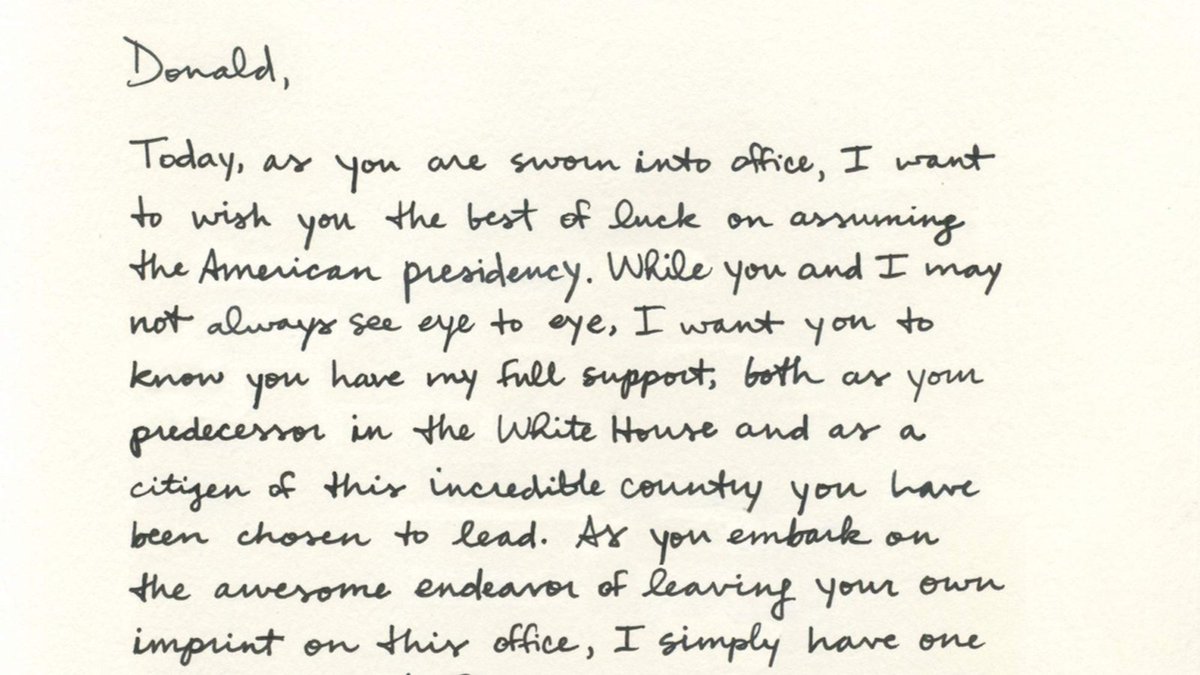 Donald,
Today, as you are sworn into office, I want
to wish you the best of luck on assuming
the American presidency. While you and I may
not always see eye to eye, I want you to
know you have my full support, both as your
predecessor in the White House and as a
citizen of this incredible country you have
been chosen to lead. As you embark on
the awesome endeavor of leaving your own
imprint on this office, I simply have one